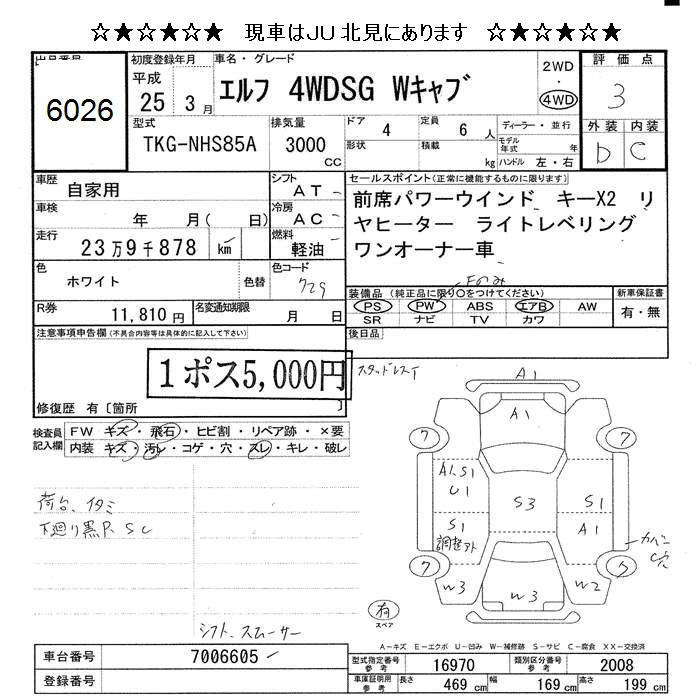 ☆★☆★☆ 現車はJU北見にあります ☆★☆★☆
出品番号
6026
初度登録年月
平成
25 3月
車名・グレード
エルフ 4WDSG Wキャブ
2WD
・
4WD
評価点
3
外装 内装
D C
型式
TKG-NHS85A
排気量
3000
CC
ドア 4
形状
定員 6 人
積載 kg
ディーラー・並行
モデル年式 年
ハンドル 左・右
車歴 自家用
シフト AT
車検 年 月( 日)
冷房 AC
走行 23万9千878 km
燃料 軽油
セールスポイント(正常に機能するものに限ります)
前席パワーウインド キーX2 リ
ヤヒーター ライトレベリング
ワンオーナー車
色 ホワイト 色替
色コード 729
Fのみ
装備品(純正品に限り○をつけてください)
PS PW ABS エアB AW
SR ナビ TV カワ
新車保証書
有・無
R券 11,810円
名変通知期限 月 日
後日品
注意事項申告欄(不具合内容等は具体的に記入して下さい)
1ポス5,000円
修復歴 有〔箇所 〕
スタッドレスT
検査員記入欄
FW キズ・飛石・ヒビ割・リペア跡・×要
内装 キズ・汚レ・コゲ・穴・スレ・キレ・破レ
荷台、イタミ
下廻り黒P、SC
シフト、スムーサー
A1
A1
7
7
A1.S1
U1
S3
S1
S1
調整アト
A1
カバー
7
ワ
W3
W3
W2
有
スペア
A-キズ E-エクボ U-凹み W-補修跡 S-サビ C-腐食 XX-交換済
車台番号 7006605
登録番号
型式指定番号参考 16970
類別区分番号参考 2008
車庫証明用参考 長さ 469 cm 幅 169 cm 高さ 199 cm